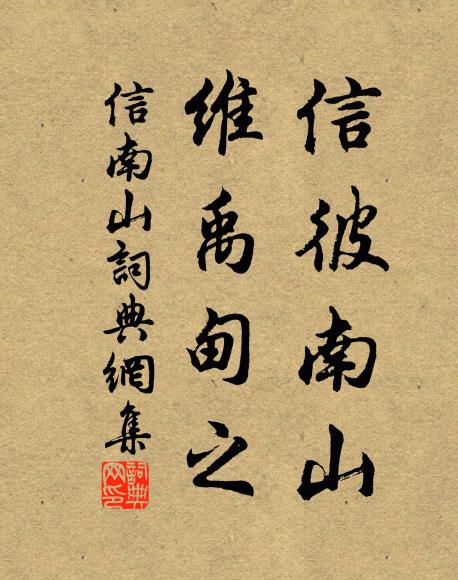 信彼南山
維禹甸之
信南山詞典網集
詞典网印